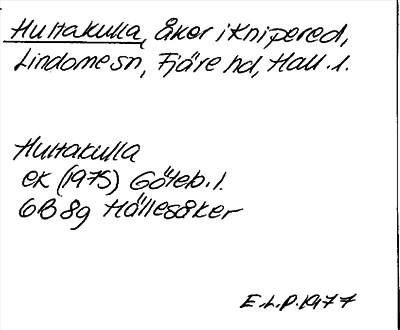 Huttakulla, åker i Knipered,
Lindome sn, Fjäre hd, Hall. l.
Huttakulla
ek (1975) Göteb. l.
6B 8g Hällesåker
E.L.P. 1977